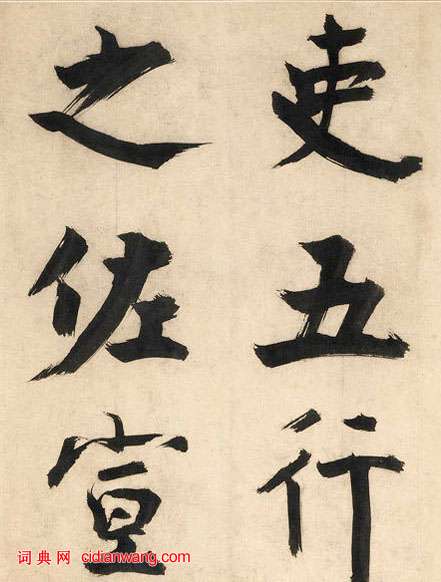 吏五行
之佐宣
词典网 cidianwang.com